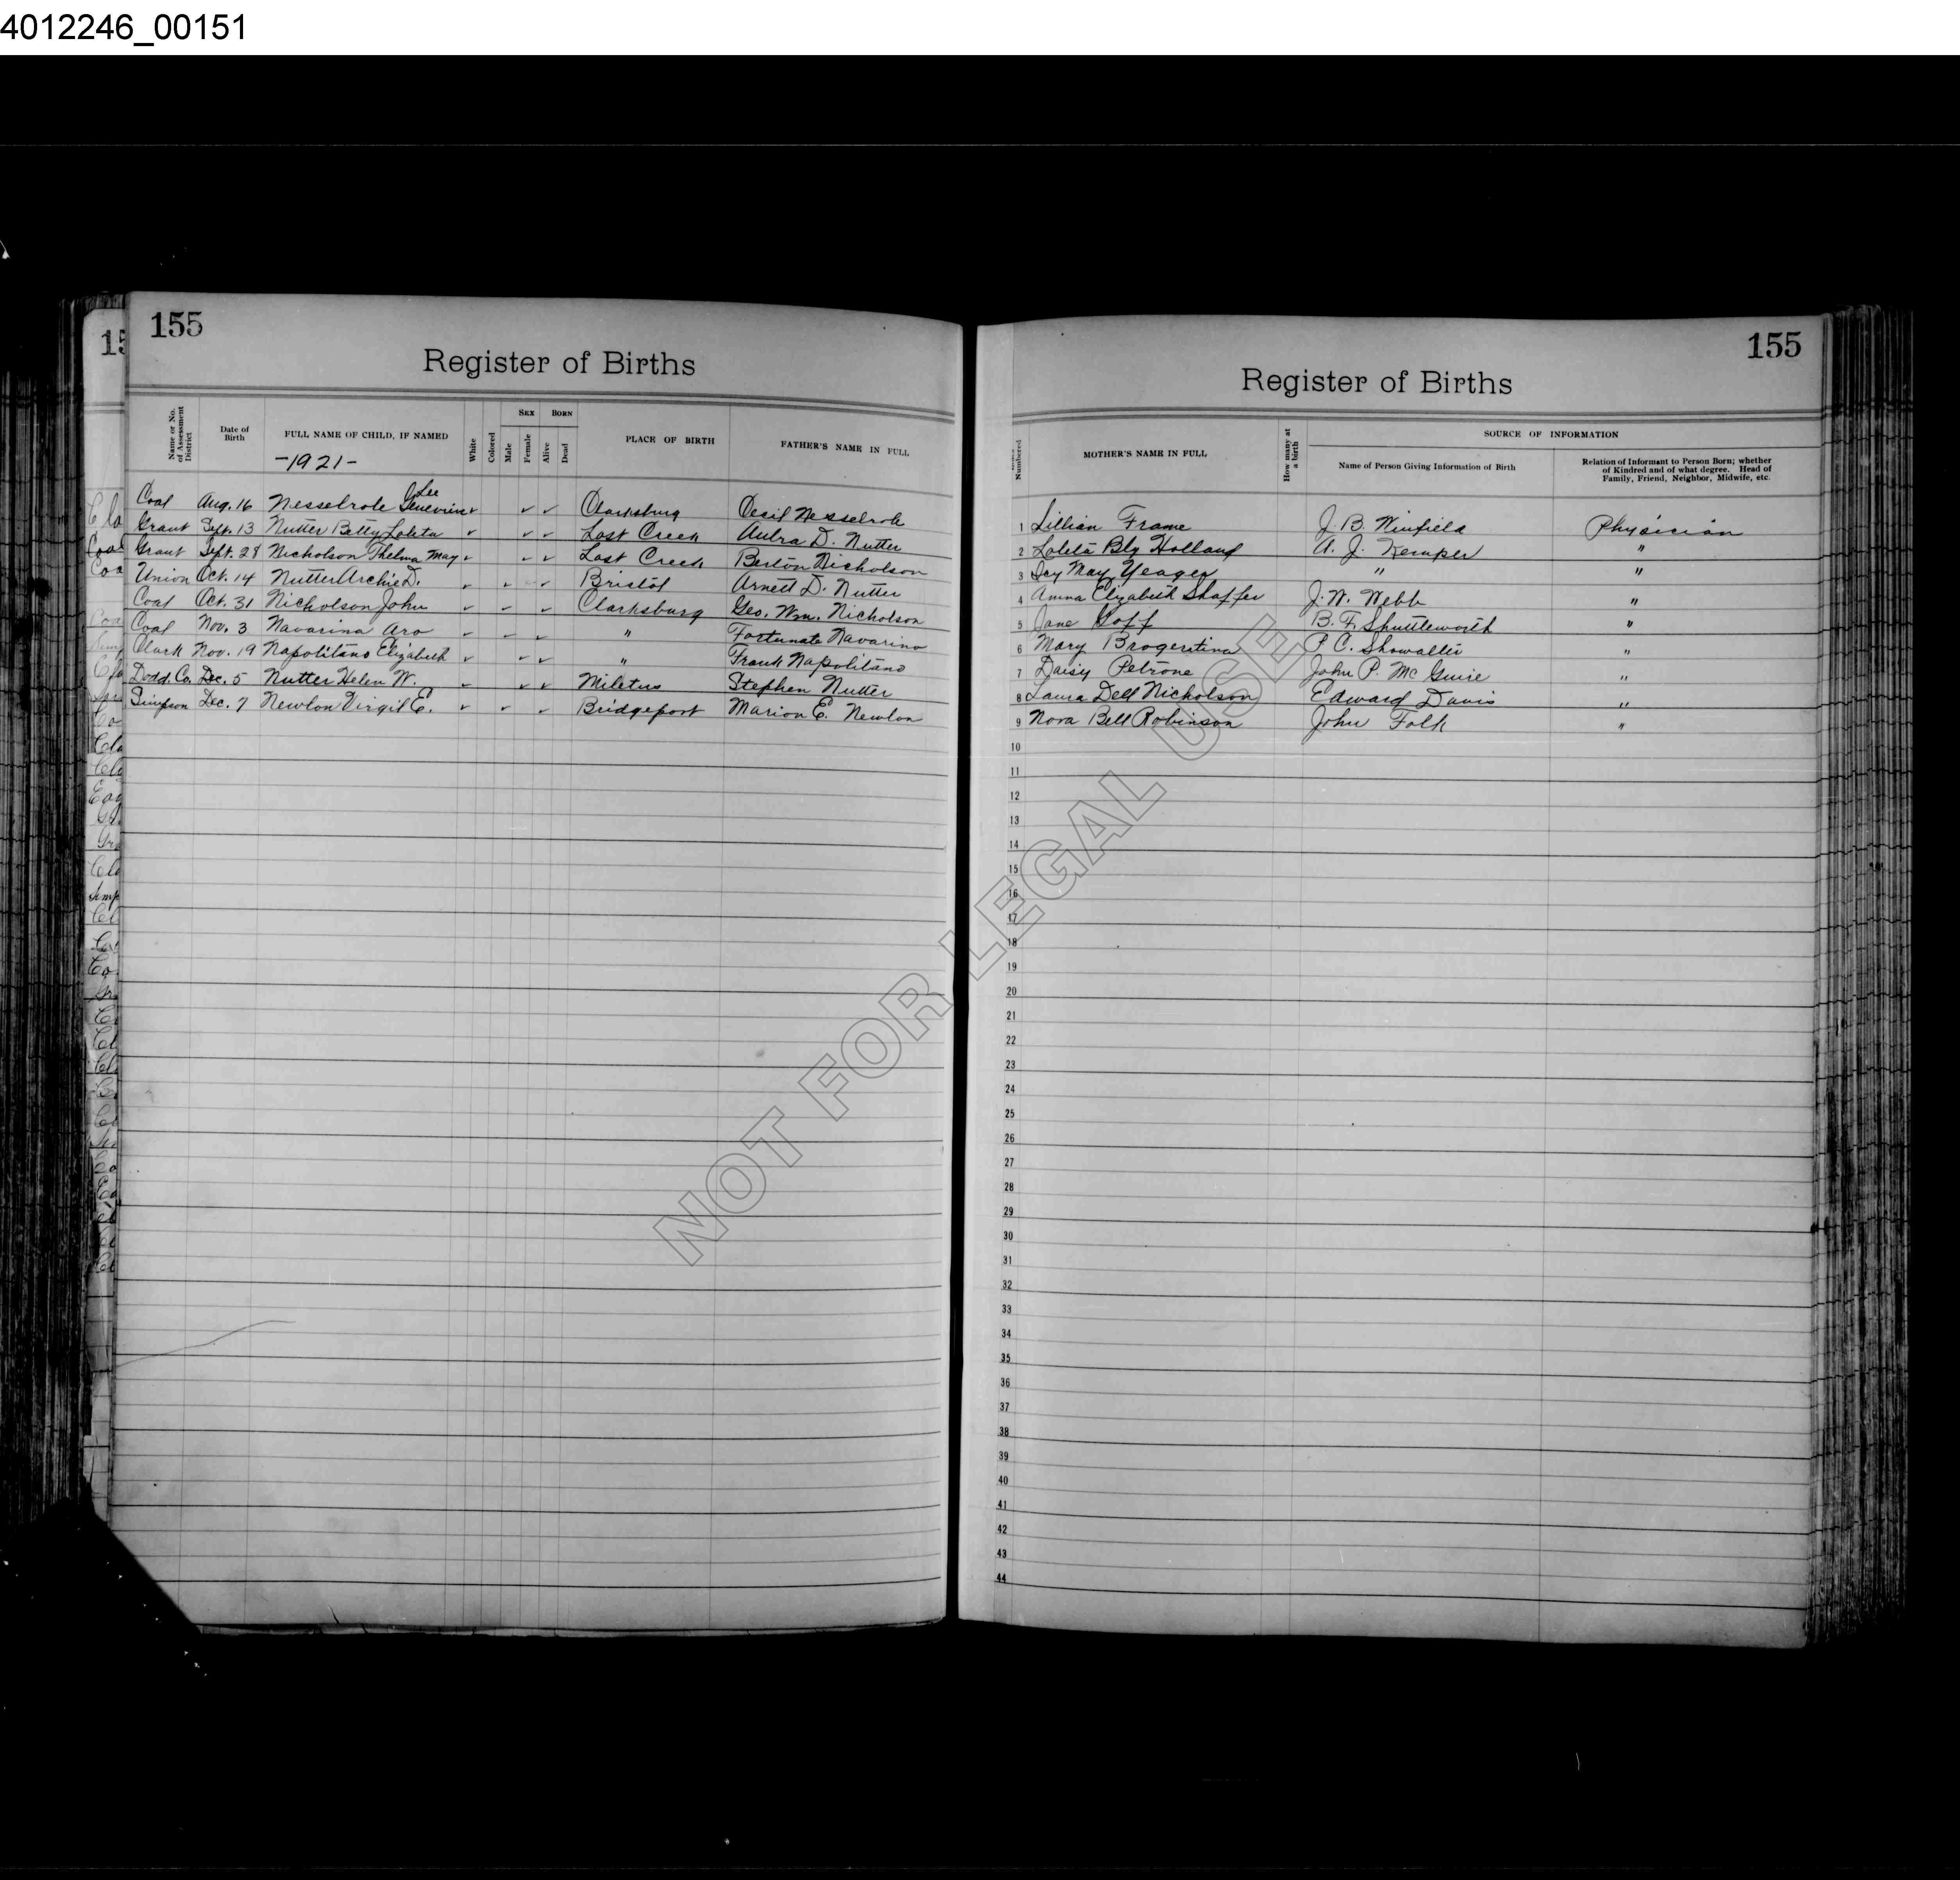 4012246_00151
155
Register of Births
Name or No. of Assessment District
Date of Birth
FULL NAME OF CHILD, IF NAMED
-1921-
White
Colored
SEX
Male
Female
BORN
Alive
Dead
PLACE OF BIRTH
FATHER'S NAME IN FULL
Coal Aug. 16 Nesselrode Genevieve Lee ✓ ✓ ✓ Clarksburg Cecil Nesselrode
Grant Sept. 13 Nutter Betty Loleta ✓ ✓ ✓ Lost Creek Aubra D. Nutter
Grant Sept. 28 Nicholson Thelma May ✓ ✓ ✓ Lost Creek Berton Nicholson
Union Oct. 14 Nutter Archie D. ✓ ✓ ✓ Bristol Arnett D. Nutter
Coal Oct. 31 Nicholson John ✓ ✓ ✓ Clarksburg Geo. Wm. Nicholson
Coal Nov. 3 Navarina Aro ✓ ✓ ✓ " Fortunato Navarino
Clark Nov. 19 Napolitano Elizabeth ✓ ✓ ✓ " Frank Napolitano
Dodd. Co. Dec. 5 Nutter Helen W. ✓ ✓ ✓ Miletus Stephen Nutter
Simpson Dec. 7 Newlon Virgil E. ✓ ✓ ✓ Bridgeport Marion E. Newlon
155
Register of Births
Numbered
MOTHER'S NAME IN FULL
How many at a birth
SOURCE OF INFORMATION
Name of Person Giving Information of Birth
Relation of Informant to Person Born; whether
of Kindred and of what degree. Head of
Family, Friend, Neighbor, Midwife, etc.
1 Lillian Frame J. B. Winfield Physician
2 Loleta Bly Holland A. J. Kemper "
3 Icy May Yeager " "
4 Anna Elizabeth Shaffer J. W. Webb "
5 Jane Goff B. F. Shuttleworth "
6 Mary Brogentina P. C. Showalter "
7 Daisy Petrone John P. McGuire "
8 Laura Dell Nicholson Edward Davis "
9 Nora Bell Robinson John Folk "
10
11
12
13
14
15
16
17
18
19
20
21
22
23
24
25
26
27
28
29
30
31
32
33
34
35
36
37
38
39
40
41
42
43
44
NOT FOR LEGAL USE